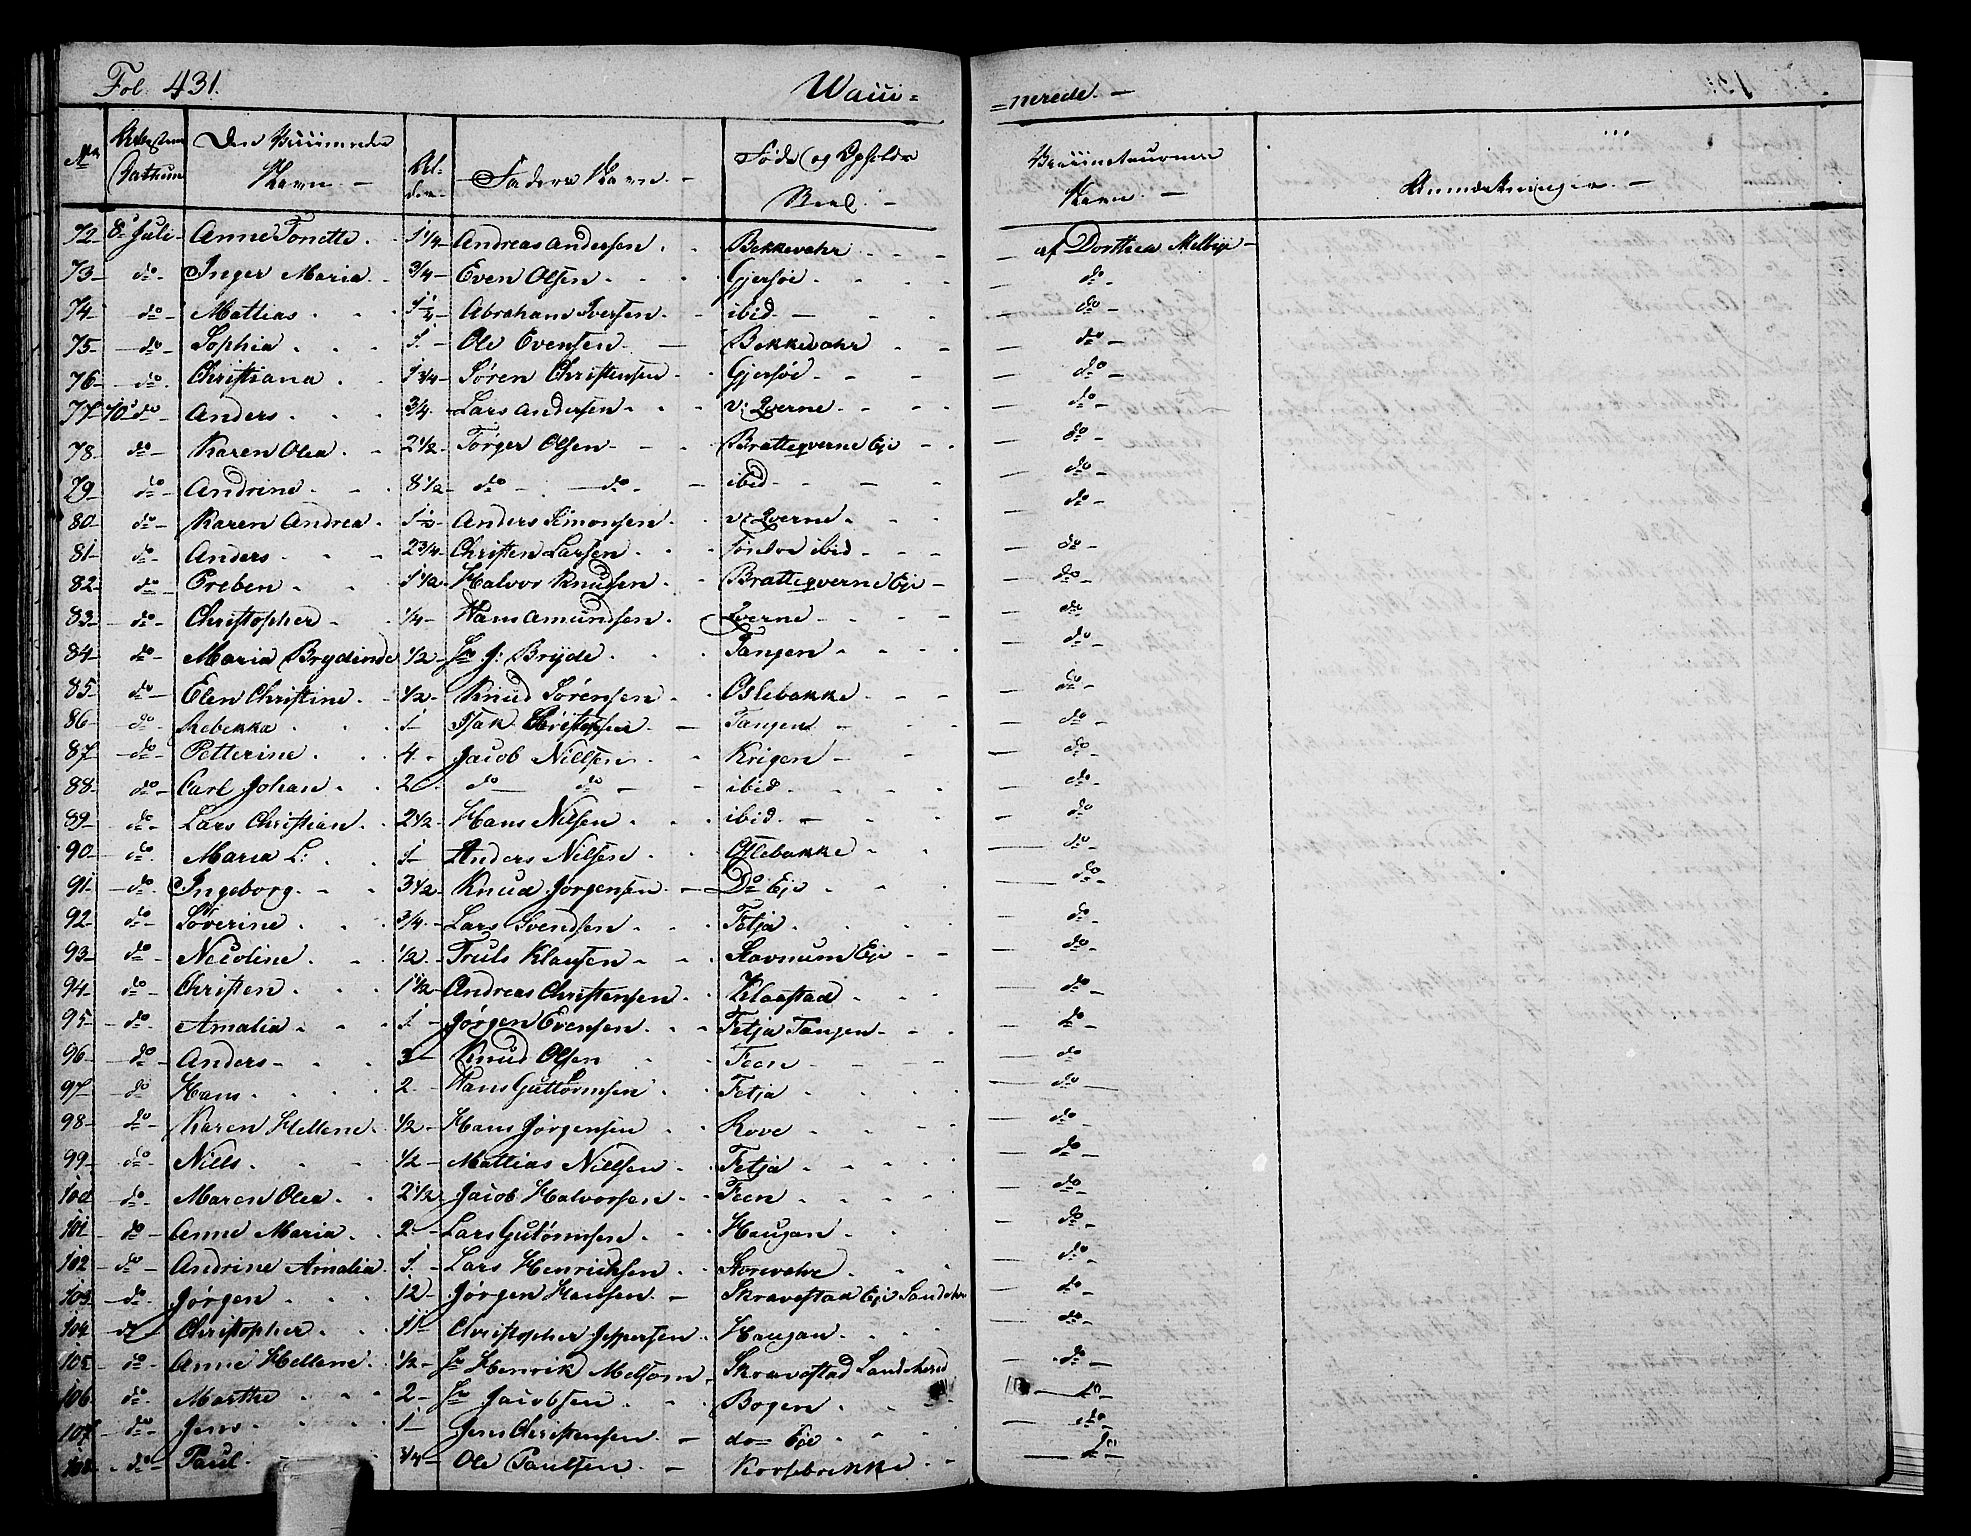 Fol. 431. Wacci= =nerede. —
No Attestens Dathum Den Vaccineredes Navn. — Al- der. Faders Navn. — Føde og Opholds Sted. — Vaccinateurens Navn. — Anmærkninger. —
72 8de Juli Anne Tonette. 1 1/4 Andreas Andersen. Bekkevahr — af Dorthea Melbye —
73 do Inger Maria 3/4 Even Olsen Gjersøe — do
74 do Mattias 1 1/4 Abraham Iversen. ibid. — do
75 do Sophia 1. Ole Evensen Bekkevahr — do
76 do Christiana 1 3/4 Søren Christensen Gjersøe — do
77 10de do Anders 3/4 Lars Andersen v: Qverne — do
78. do Karen Olea. 2 1/2 Torger Olsen Bratteqverne Eje — do
79 do Andrine 8 1/2 do do ibid — do
80 do Karen Andrea 1 1/2 Anders Simonsen v: Qverne — do
81 do Anders 2 3/4 Christen Larsen Søndre ibid — do
82 do Preben 1 1/2 Halvor Knudsen Bratteqverne Eje — do
83 do Christopher 1/4 Hans Amundsen Qverne — do
84 do Maria Brydinde 1/2 Hr J: Bryde Tangen — do
85 do Elen Christine 1/2 Knud Sørensen Oslebakke — do
86 do Rebekka 1 Isak Christophsen Tangen — do
87 do Petterine 4 Jacob Nielsen Krigen — do
88 do Carl Johan 2 do do ibid. — do
89 do Lars Christian. 2 1/2 Hans Nilsen ibid. — do
90 do Maria L: 1 Anders Nilsen Oslebakke — do
91 do Ingeborg. 3 1/2 Knud Jørgensen Do Eje — do
92 do Søverine 3/4 Lars Svendsen Tetja — do
93 do Nicoline 1/2 Truls Klausen Stavnum Eje — do
94 do Christen 1 1/2 Andreas Christensen Klaastad — do
95 do Amalia 1 Jørgen Evensen. Tetja Tangen — do
96 do Anders 3 Knud Olsen Feen — do
97 do Hans 2 Hans Guttormsen Tetja — do
98 do Karen Hellene. 1/2 Hans Jørgensen Rove — do
99 do Niels 1/2 Mattias Nielsen Tetja — do
100 do Maren Olea 2 1/2 Jacob Halvorsen Feen — do
101 do Anne Maria 2 Lars Gutormsen Haugan — do
102 do Andrine Amalia 1. Lars Henrichsen Storevahr — do
103 do Jørgen 12 Jørgen Hansen Skravestad Eje Sandeher — do
104 do Christopher 11 Christopher Jeppersen Haugan — do
105 do Anne Hellene 1/2 Hr Henrik Melsom Skravestad Sandeherred — do
106 do Marthe 2 Hr Jacobsen Bogen — do
107 do Jens 1 Jens Christensen. do Eje — do
108 do Paul 3/4 Ole Paulsen Korsebrekke — do